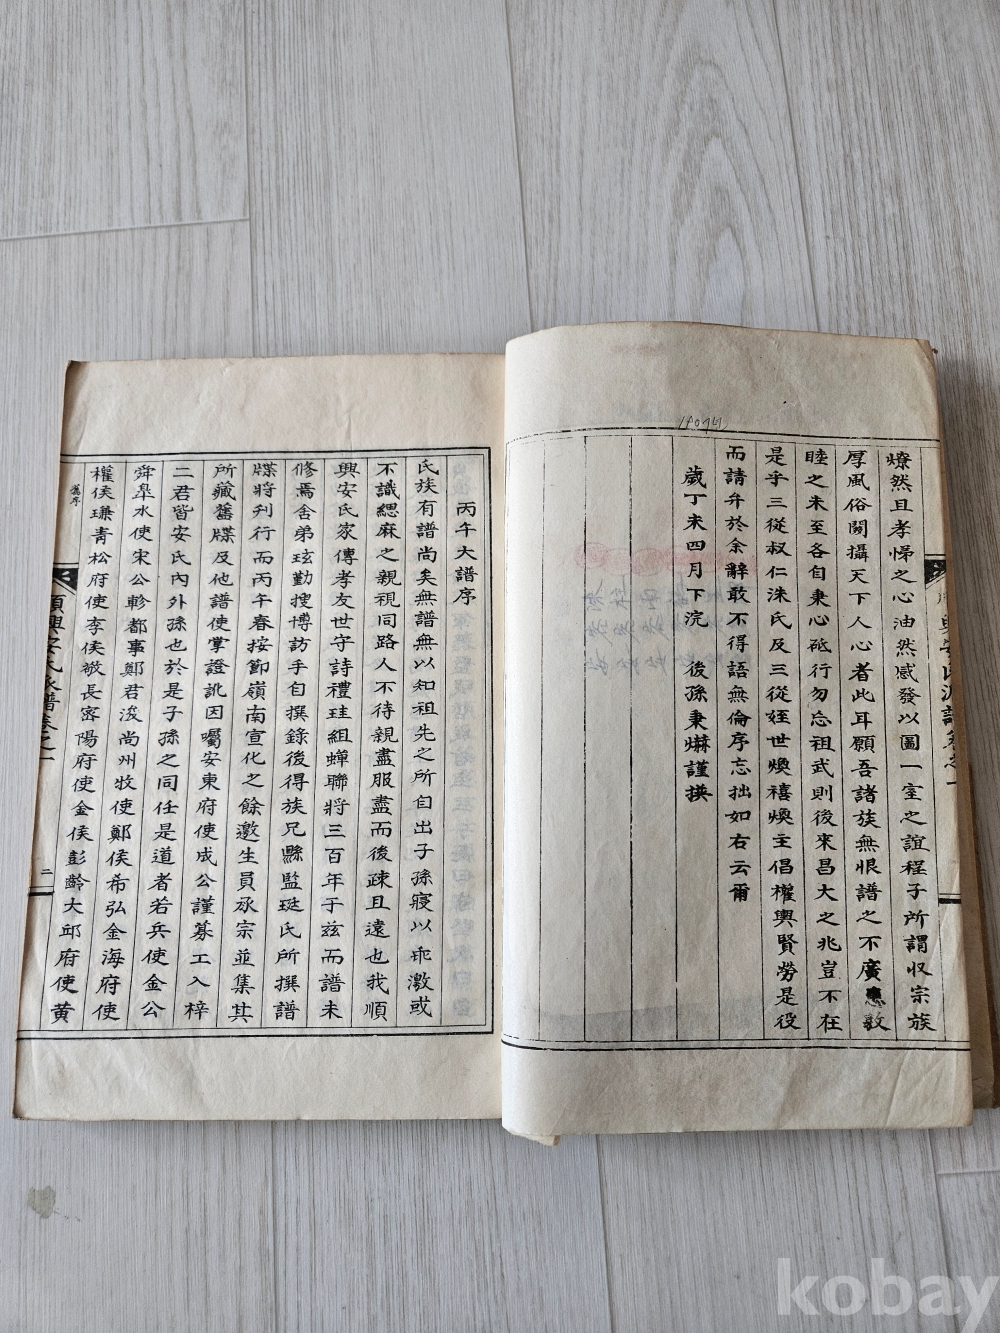 燎然且孝悌之心油然感發以圖一室之誼程子所謂収宗族
厚風俗閼攝天下人心者此耳願吾諸族無恨譜之不廣惠敦
睦之未至各自秉心砥行勿忘祖武則後來昌大之兆豈不在
是乎三從叔仁洙氏及三從姪世煥禧煥主倡權輿賢勞是役
而請弁於余辭敢不得語無倫序忘拙如右云爾
歲丁未四月下浣 後孫秉爀謹撰
丙午大譜序
氏族有譜尚矣無譜無以知祖先之所自出子孫寢以乖澆或
不識緦麻之親視同路人不待親盡服盡而後疎且遠也我順
興安氏家傳孝友世守詩禮珪組蟬聯將三百年于玆而譜未
修焉舍弟玹勤搜博訪手自撰錄後得族兄縣監珽氏所撰譜
牒將刋行而丙午春按節嶺南宣化之餘邀生員承宗並集其
所藏舊牒及他譜使掌證訛因囑安東府使成公謹募工入梓
二君皆安氏內外孫也於是子孫之同任是道者若兵使金公
舜皐水使宋公軫都事鄭君浚尚州牧使鄭侯希弘金海府使
權侯璉青松府使李侯敬長密陽府使金侯彭齡大邱府使黃
舊序
順興安氏派譜卷之一
二
kobay